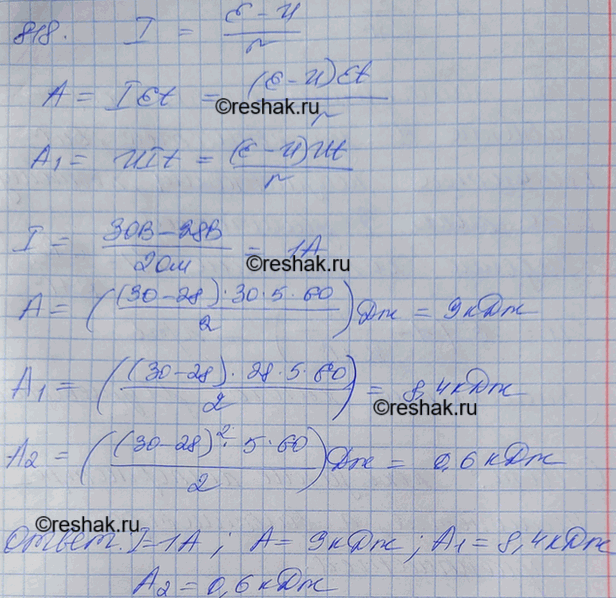 818. I = (ℰ - U)/r
A = Iℰt = (ℰ - U)ℰt/r
©reshak.ru
A₁ = UIt = (ℰ - U)Ut/r
I = (30В - 28В)/2Ом = 1А
©reshak.ru
A = ((30 - 28) · 30 · 5 · 60/2) Дж = 9 кДж
A₁ = ((30 - 28) · 28 · 5 · 60/2) = 8,4 кДж
©reshak.ru
A₂ = ((30 - 28)² · 5 · 60/2) Дж = 0,6 кДж
©reshak.ru
Ответ: I = 1А; A = 9 кДж; A₁ = 8,4 кДж
A₂ = 0,6 кДж